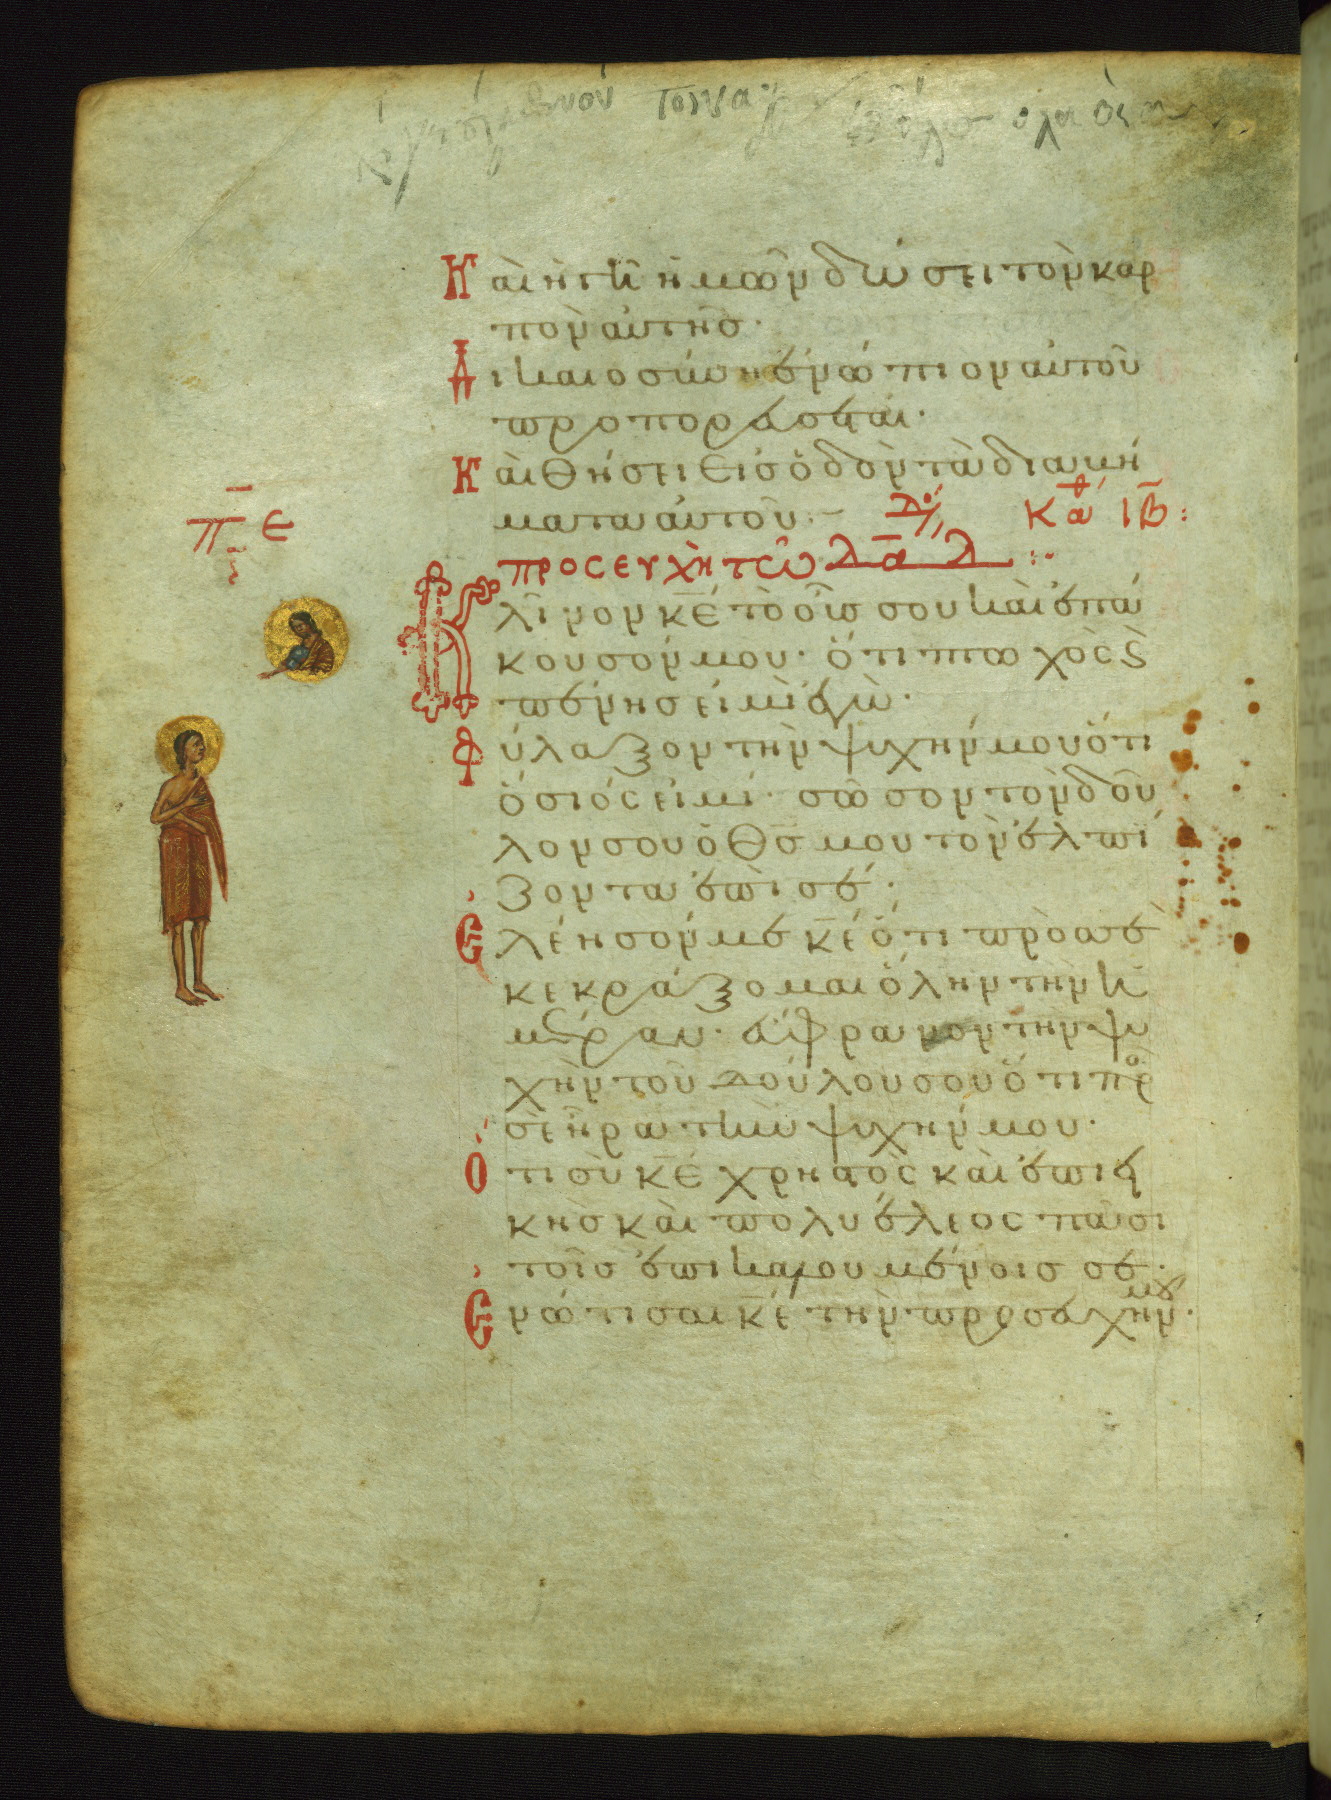 Καὶ ἡ γῆ ἡμῶν δώσει τὸν καρ
πὸν αὐτῆσ·
Δικαιοσύνη ἐνώπιον αὐτοῦ
προπορεύσεται·
Καὶ θήσει εἰσ ὁδὸν τὰ διαβή
ματα αὐτοῦ:
Κά ΙΒ:
π ε
προσευχὴ τῶ δᾱδ:
Κλῖνον κ̅ε̅ τὸ οὖσ σου καὶ ἐπά
κουσόν μου· ὅτι πτωχὸς ϛ
πένησ εἰμὶ ἐγὼ·
Φύλαξον τὴν ψυχήν μου ὅτι
ὅσιός εἰμί· σῶσον τὸν δοῦ
λον σου ὁ θ̅σ̅ μου τὸν ἐλπί
ζοντα ἐπὶ σέ·
Ἐλέησόν με κ̅ε̅ ὅτι πρὸσ σὲ
κεκράξομαι ὅλην τὴν ἡ
μέραν· εὔφρανον τὴν ψυ
χὴν τοῦ δούλου σου ὅτι πρ
σὲ ἦρα τὴν ψυχήν μου·
Ὅτι σὺ κ̅ε̅ χρηστὸς καὶ ἐπιει
κὴσ καὶ πολυέλεος πᾶσι
τοῖσ ἐπικαλουμένοισ σε·
Ἐνώτισαι κ̅ε̅ τὴν προσευχήν μου·